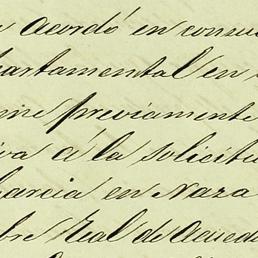 Acordó en consu
artamental en
me previamente
iva á la solicitu
Garcia en Naza
bre Real de Acued